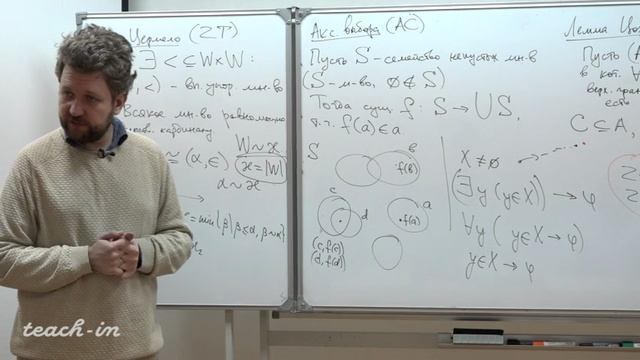 Цермело (ZT)
∃ < ⊆ W×W :
, <) - вп. упор. мн-во
Всякое мн-во равномощно
кардиналу
W ~ ϰ
≅ (α, ∈)
ϰ = |W|
α ~ ϰ
= min{β | β ⩽ α, β ~ α}
Акс. выбора (AC)
Пусть S - семейство непустых мн-в
(S - мн-во, ∅ ∉ S)
Тогда сущ. f : S → ∪S,
т.ч. f(a) ∈ a
S
b
f(b)
c
d
a
f(a)
(c, f(c))
(d, f(d))
X ≠ ∅
(∃y (y∈X)) → φ
∀y (y∈X → φ)
y∈X → φ
Лемма Цо
Пусть (A
в кот. ∀
верх. гран
есть
C ⊆ A,
teach-in